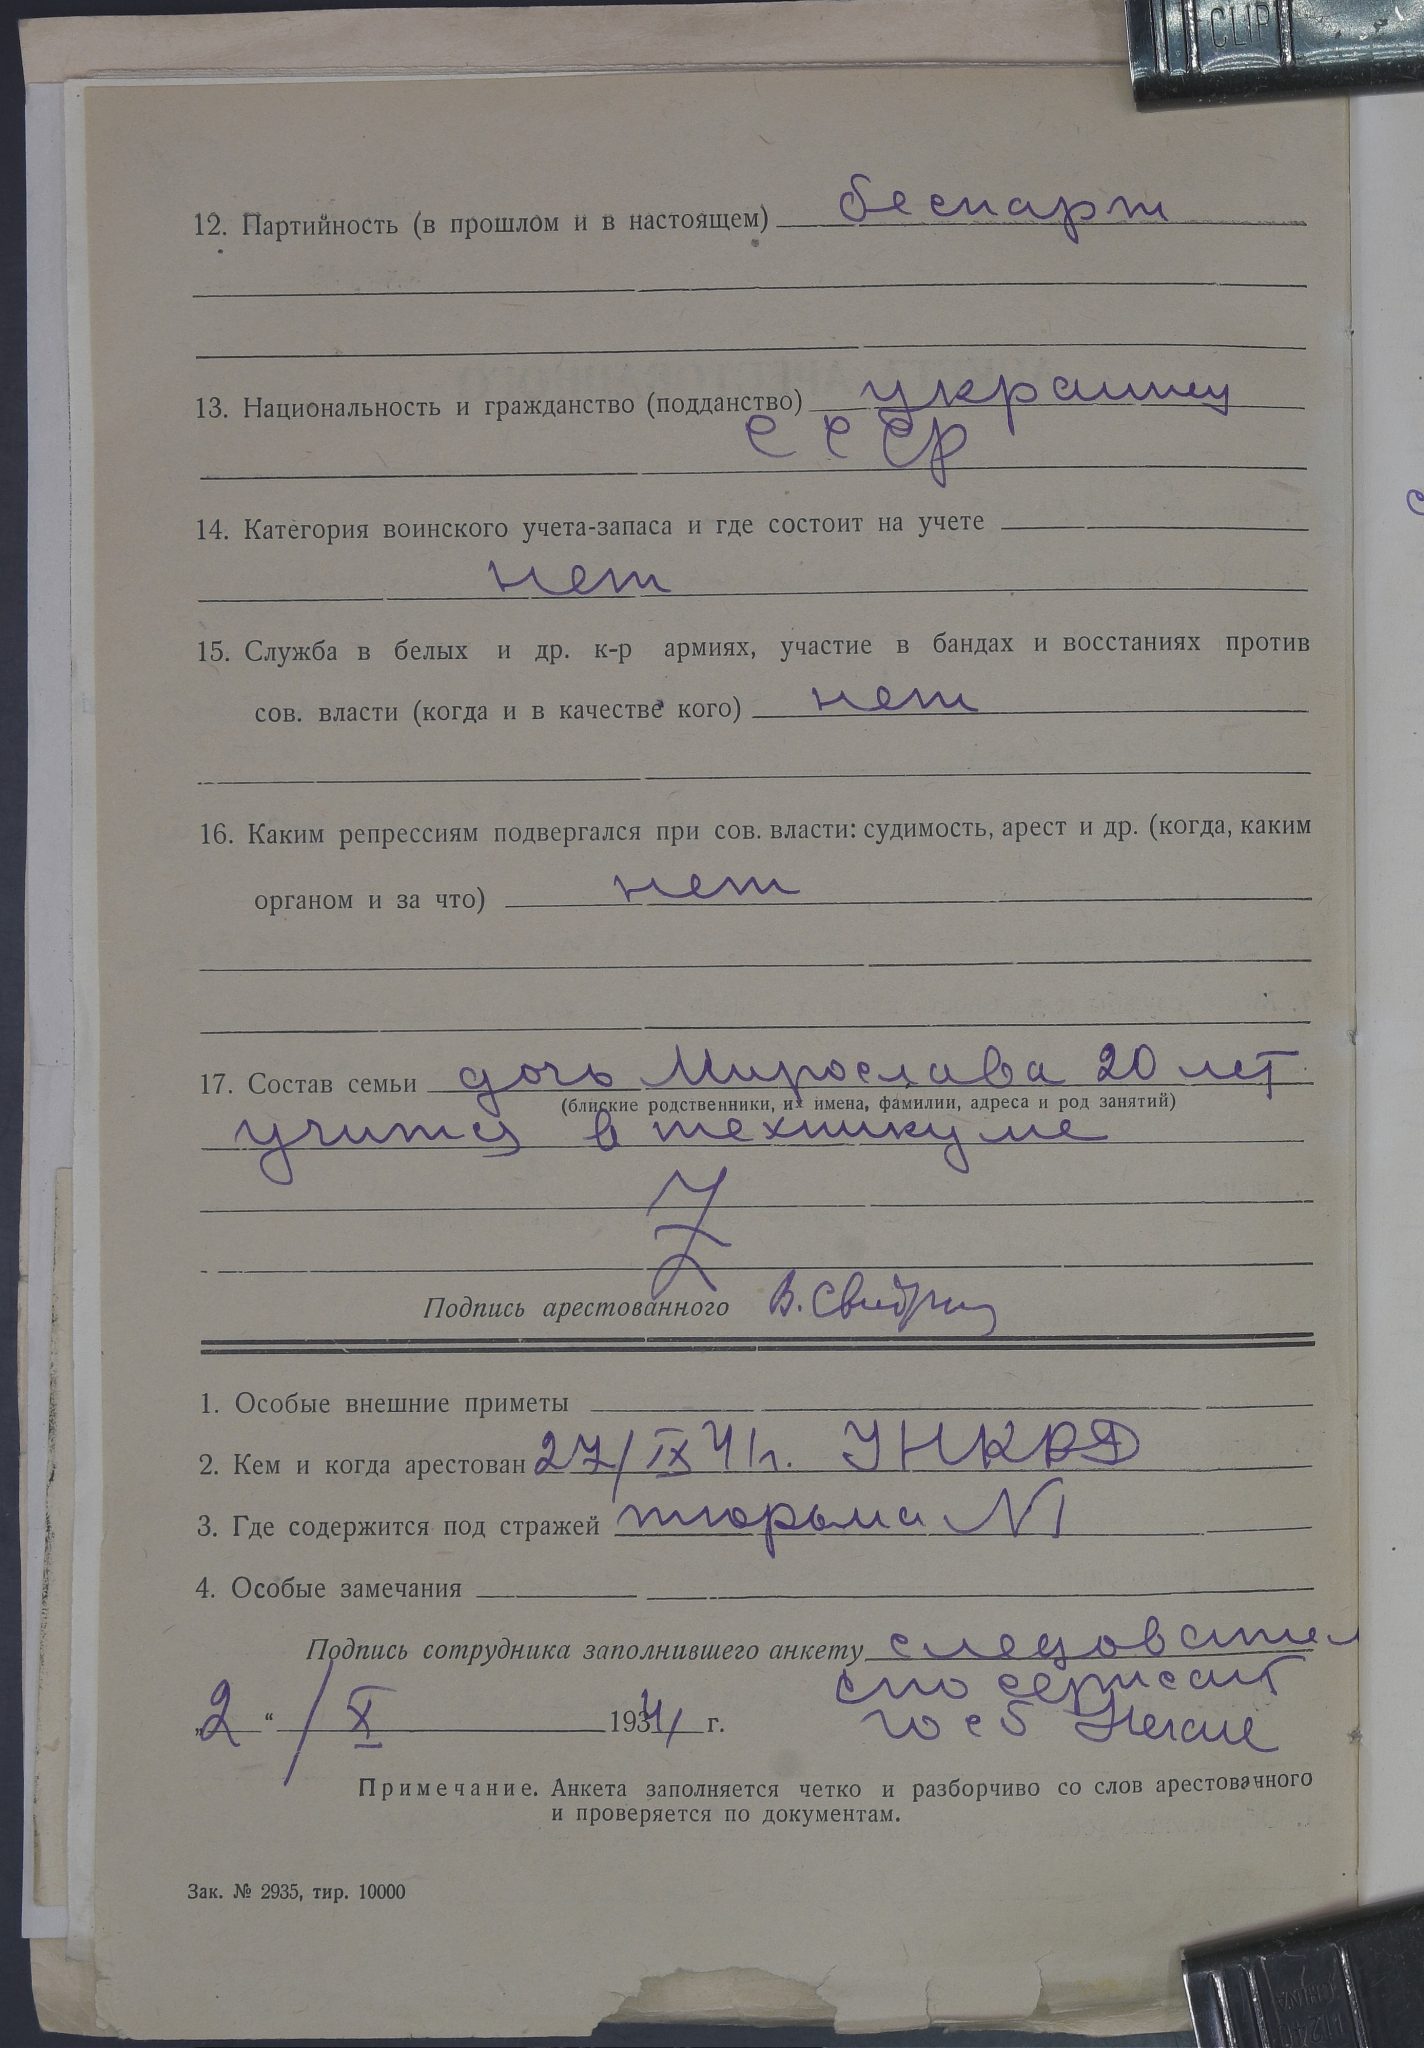 CLIP
12. Партийность (в прошлом и в настоящем) беспарт
13. Национальность и гражданство (подданство) украинец
СССР
14. Категория воинского учета-запаса и где состоит на учете
нет
15. Служба в белых и др. к-р армиях, участие в бандах и восстаниях против
сов. власти (когда и в качестве кого) нет
16. Каким репрессиям подвергался при сов. власти: судимость, арест и др. (когда, каким
органом и за что) нет
17. Состав семьи дочь Мирослава 20 лет
(блиские родственники, их имена, фамилии, адреса и род занятий)
учится в техникуме
Подпись арестованного
1. Особые внешние приметы
2. Кем и когда арестован 27/IX 41 г. УНКВД
3. Где содержится под стражей тюрьма N1
4. Особые замечания
Подпись сотрудника заполнившего анкету следовател
спо сержант
„2“ / X 1941 г. гос б
Примечание. Анкета заполняется четко и разборчиво со слов арестованного
и проверяется по документам.
Зак. № 2935, тир. 10000